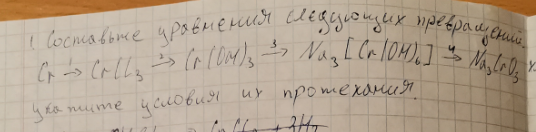 1 Составьте уравнения следующих превращений.
Cr →¹ CrCl₃ →² Cr(OH)₃ →³ Na₃[Cr(OH)₆] →⁴ Na₃CrO₃
укажите условия их протекания.